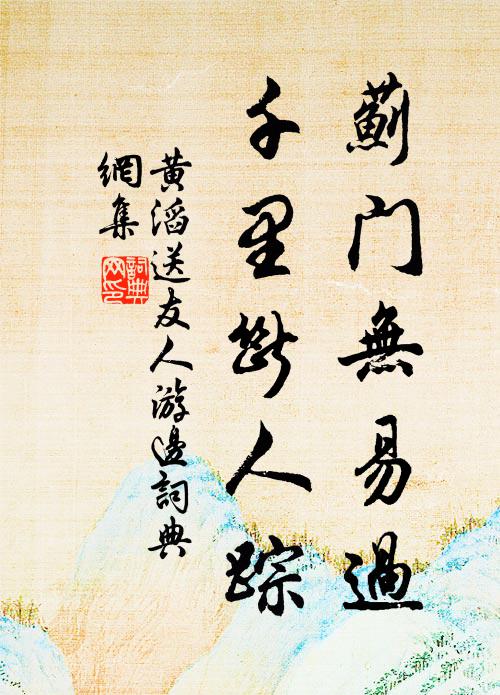 薊門無易過
千里斷人踪
黄滔送友人游邊詞典
網集
詞典
网印